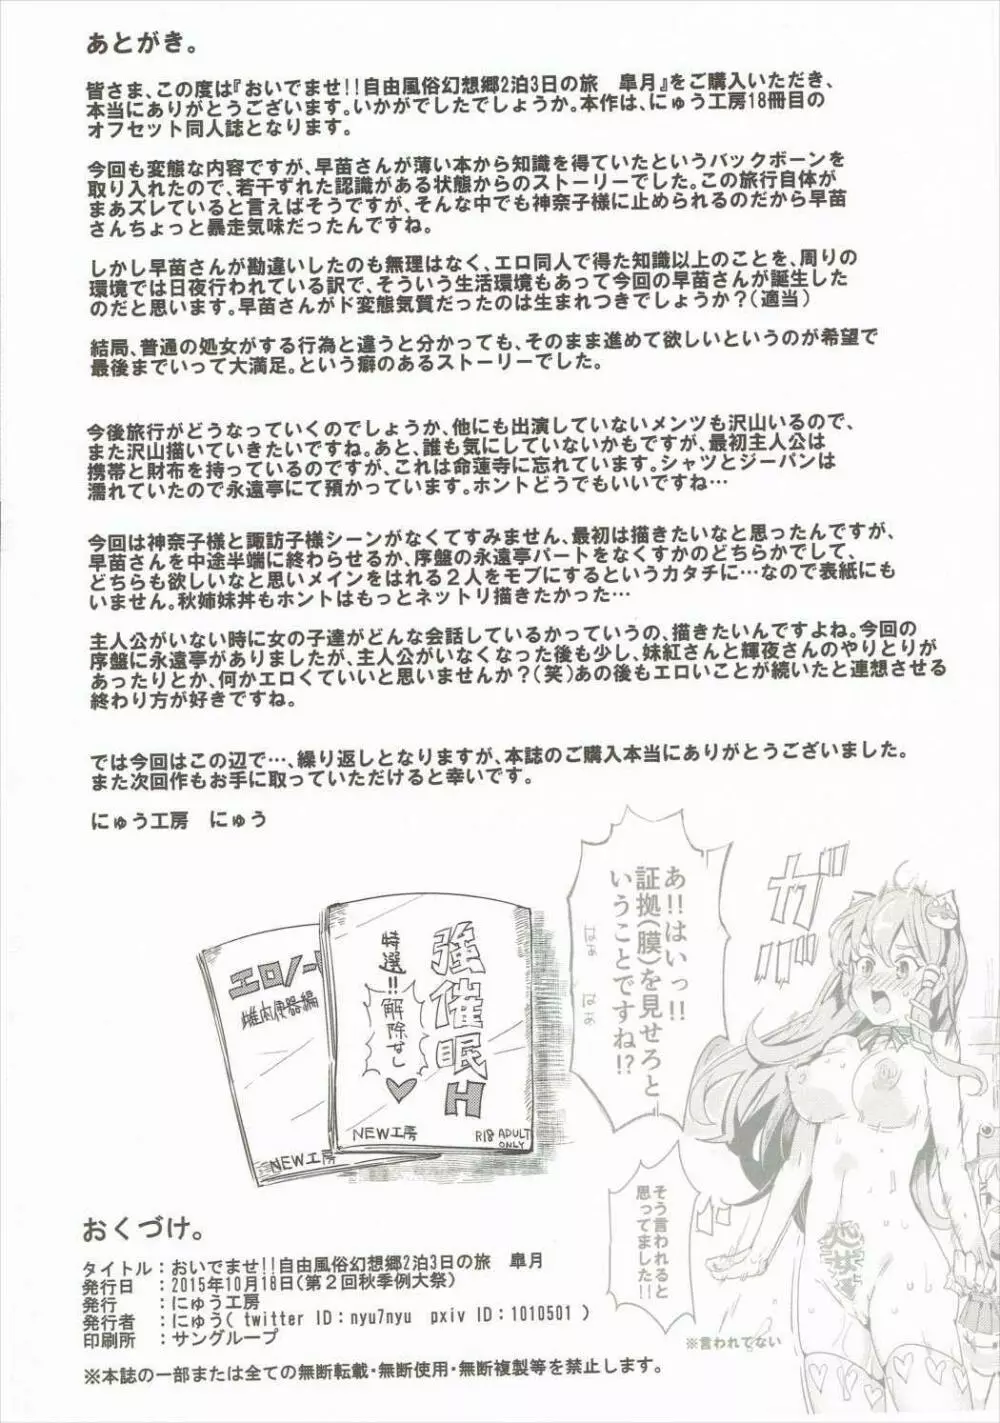 あとがき。
皆さま、この度は『おいでませ!!自由風俗幻想郷2泊3日の旅　皐月』をご購入いただき、
本当にありがとうございます。いかがでしたでしょうか。本作は、にゅう工房18冊目の
オフセット同人誌となります。
今回も変態な内容ですが、早苗さんが薄い本から知識を得ていたというバックボーンを
取り入れたので、若干ずれた認識がある状態からのストーリーでした。この旅行自体が
まあズレていると言えばそうですが、そんな中でも神奈子様に止められるのだから早苗
さんちょっと暴走気味だったんですね。
しかし早苗さんが勘違いしたのも無理はなく、エロ同人で得た知識以上のことを、周りの
環境では日夜行われている訳で、そういう生活環境もあって今回の早苗さんが誕生した
のだと思います。早苗さんがド変態気質だったのは生まれつきでしょうか？（適当）
結局、普通の処女がする行為と違うと分かっても、そのまま進めて欲しいというのが希望で
最後までいって大満足。という癖のあるストーリーでした。
今後旅行がどうなっていくのでしょうか、他にも出演していないメンツも沢山いるので、
また沢山描いていきたいですね。あと、誰も気にしていないかもですが、最初主人公は
携帯と財布を持っているのですが、これは命蓮寺に忘れています。シャツとジーパンは
濡れていたので永遠亭にて預かっています。ホントどうでもいいですね…
今回は神奈子様と諏訪子様シーンがなくてすみません、最初は描きたいなと思ったんですが、
早苗さんを中途半端に終わらせるか、序盤の永遠亭パートをなくすかのどちらかでして、
どちらも欲しいなと思いメインをはれる２人をモブにするというカタチに…なので表紙にも
いません。秋姉妹丼もホントはもっとネットリ描きたかった…
主人公がいない時に女の子達がどんな会話しているかっていうの、描きたいんですよね。今回の
序盤に永遠亭がありましたが、主人公がいなくなった後も少し、妹紅さんと輝夜さんのやりとりが
あったりとか、何かエロくていいと思いませんか？（笑）あの後もエロいことが続いたと連想させる
終わり方が好きですね。
では今回はこの辺で…、繰り返しとなりますが、本誌のご購入本当にありがとうございました。
また次回作もお手に取っていただけると幸いです。
にゅう工房　にゅう
ガ
あ!!はいっ!!
証拠(膜)を見せろと
いうことですね!?
はぁ
はぁ
強催眠H
特選!!解除なし
NEW工房
R18 ADULT
ONLY
エロノー
雌肉便器編
NEW工房
そう言われると
思ってました!!
処女
※言われてない
おくづけ。
タイトル：おいでませ!!自由風俗幻想郷2泊3日の旅　皐月
発行日　：2015年10月18日（第２回秋季例大祭）
発行　　：にゅう工房
発行者　：にゅう( twitter ID：nyu7nyu　pxiv ID：1010501 )
印刷所　：サングループ
※本誌の一部または全ての無断転載・無断使用・無断複製等を禁止します。